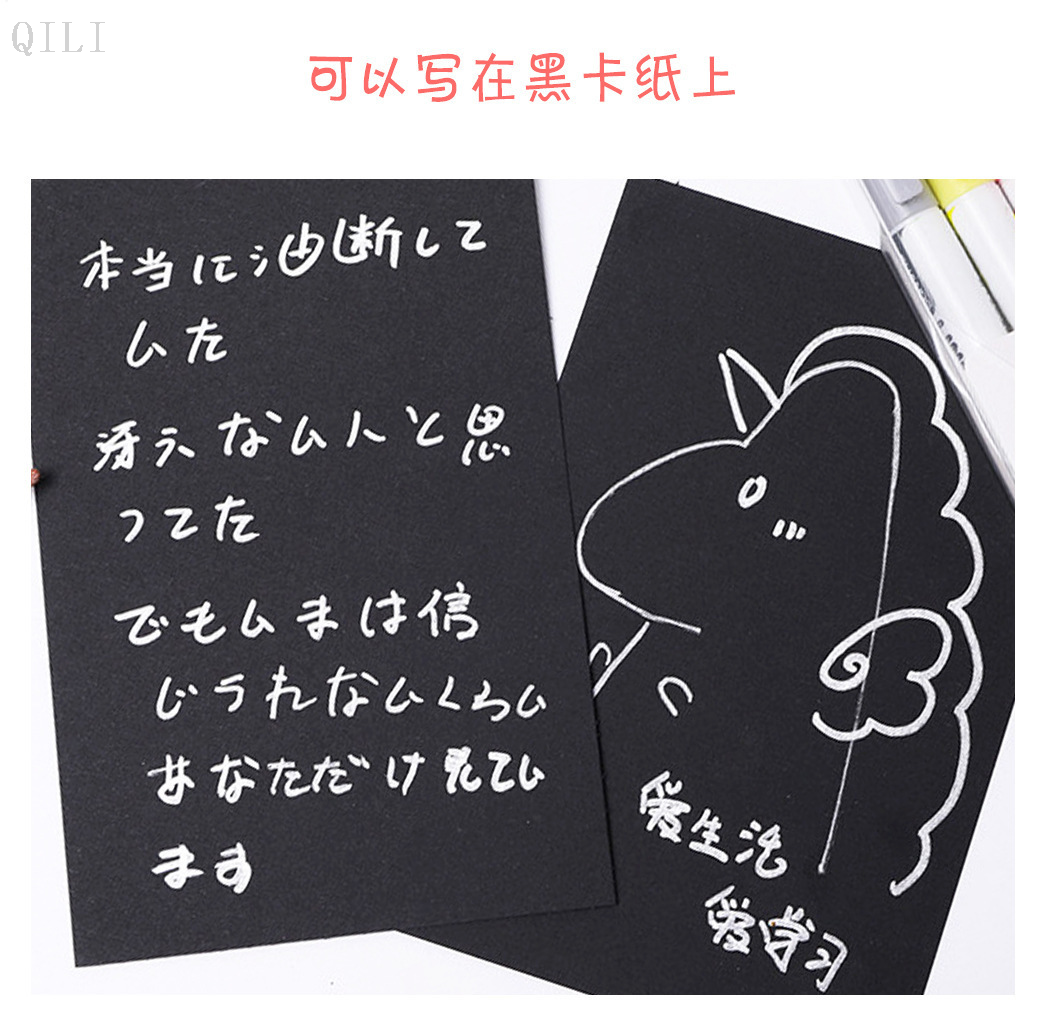 QILI
可以写在黑卡纸上
本当に油断して
ムた
冴えなム人と思
ってた
でもムまは信
じられなムくらム
あなただけ見てム
ます
爱生活
爱学习